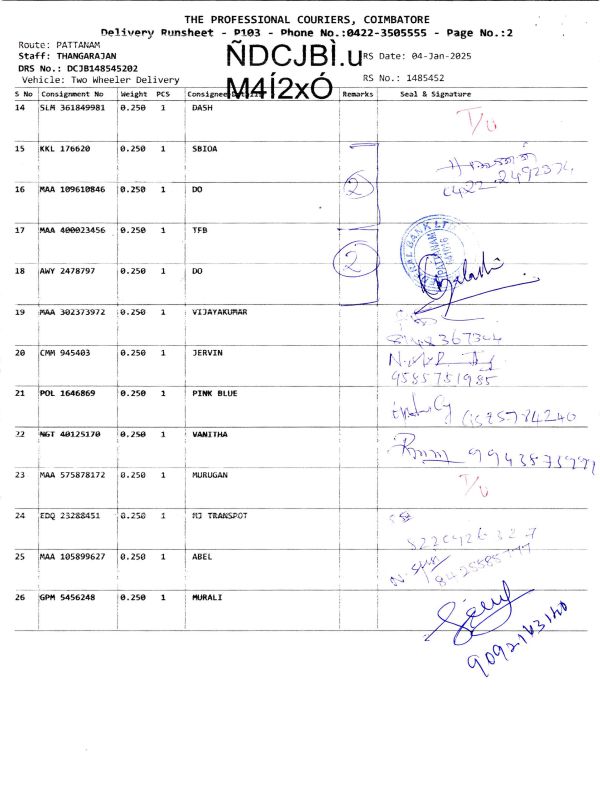 THE PROFESSIONAL COURIERS, COIMBATORE
Delivery Runsheet - P103 - Phone No.:0422-3505555 - Page No.:2
Route: PATTANAM
Staff: THANGARAJAN
ÑDCJBÌ.u
RS Date: 04-Jan-2025
DRS No.: DCJB148545202
Vehicle: Two Wheeler Delivery
M4Í2xÓ
RS No.: 1485452
S No Consignment No Weight PCS Consignee Details Remarks Seal & Signature
14 SLM 361849981 0.250 1 DASH T/U
15 KKL 176620 0.250 1 SBIOA
16 MAA 109610846 0.250 1 DO 2
17 MAA 400023456 0.250 1 TFB
18 AWY 2478797 0.250 1 DO 2
19 MAA 302373972 0.250 1 VIJAYAKUMAR
20 CMM 945403 0.250 1 JERVIN
9585751985
21 POL 1646869 0.250 1 PINK BLUE
22 NGT 40125170 0.250 1 VANITHA
23 MAA 575878172 0.250 1 MURUGAN T/U
24 EDQ 23288451 0.250 1 MJ TRANSPOT
25 MAA 105899627 0.250 1 ABEL
26 GPM 5456248 0.250 1 MURALI